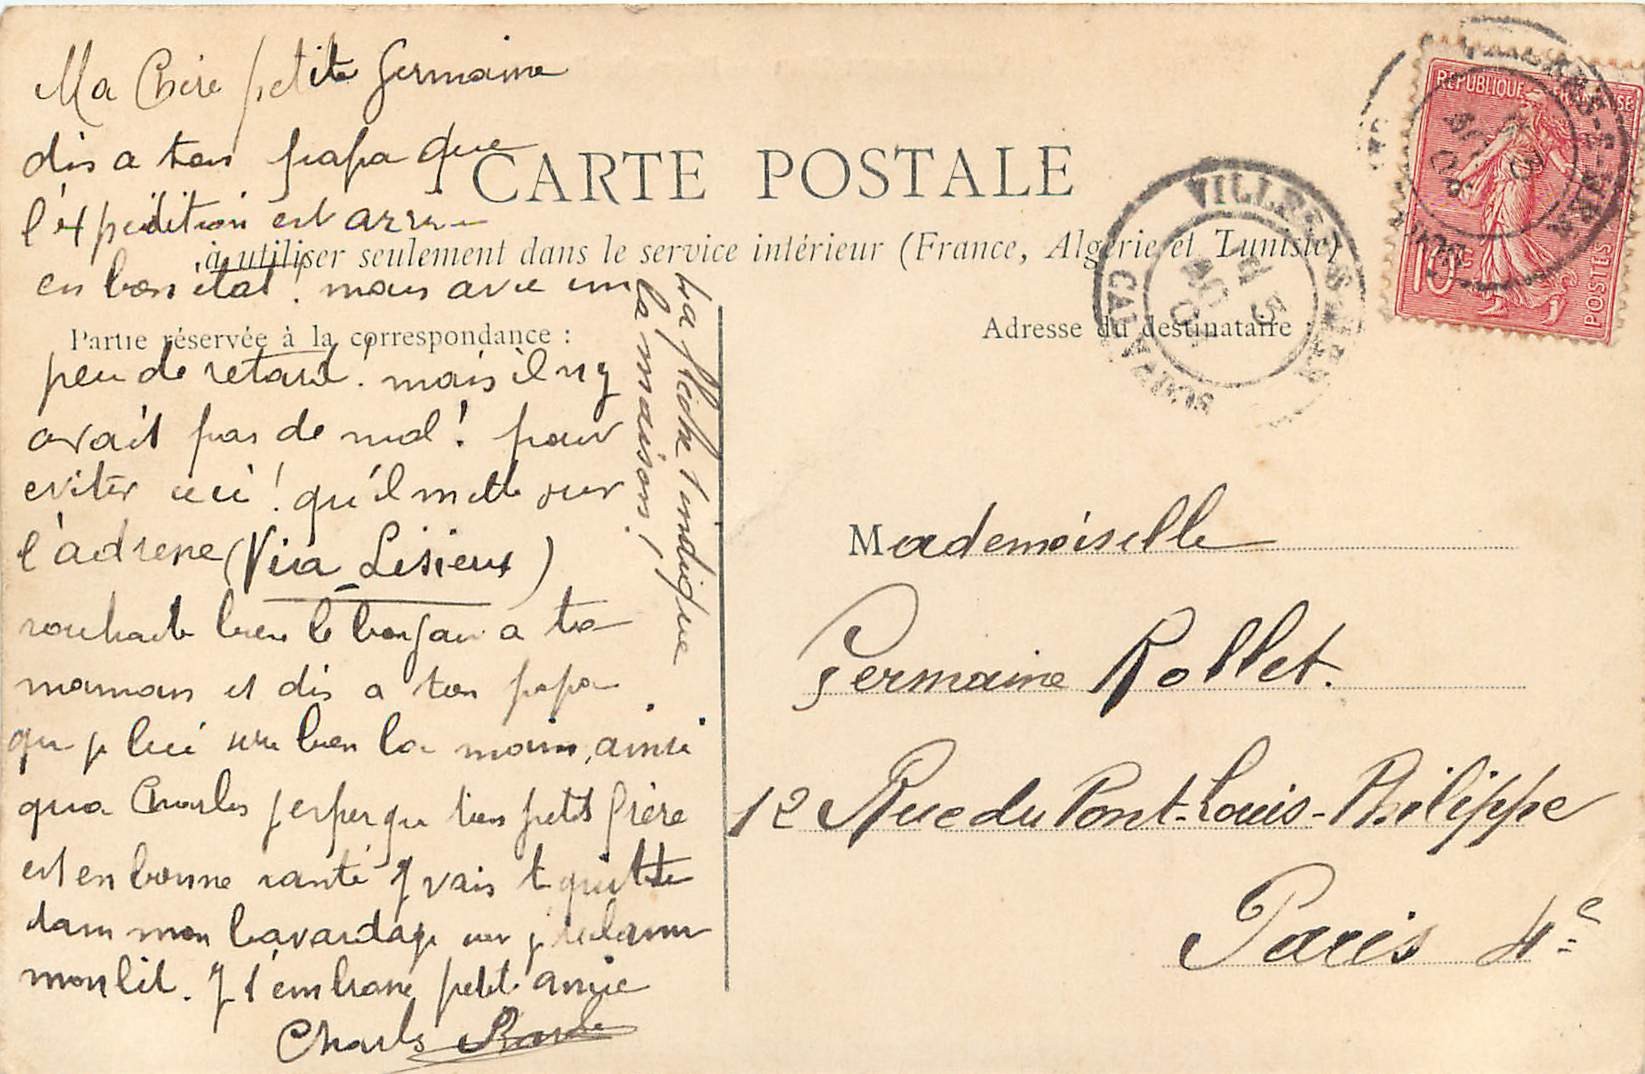 Ma Chère petite Germaine
dis a ton papa que
l'expédition est arrive
en bon état! nous avie un
peu de retard. mais il n y
avait pas de mal! pour
eviter ceci! qu'il mette sur
l'adresse (Via Lisieux)
souhaite bien le bonjour a ta
maman et dis a ton papa.
que je lui serre bien la main, ainsi
qua Charles j'esper que ton petit frère
est en bonne santé J vais te quitte
dans mon bavardage car je reclame
mon lit. J t'embrasse petite amie
Charles
La flèche indique
la maison!
CARTE POSTALE
à utiliser seulement dans le service intérieur (France, Algérie et Tunisie)
Partie réservée à la correspondance :
Adresse du destinataire :
VILLERS S MER
CALVADOS
RÉPUBLIQUE FRANÇAISE
10 c
POSTES
Mademoiselle
Germaine Rollet.
12 Rue du Pont-Louis-Philippe
Paris 4e